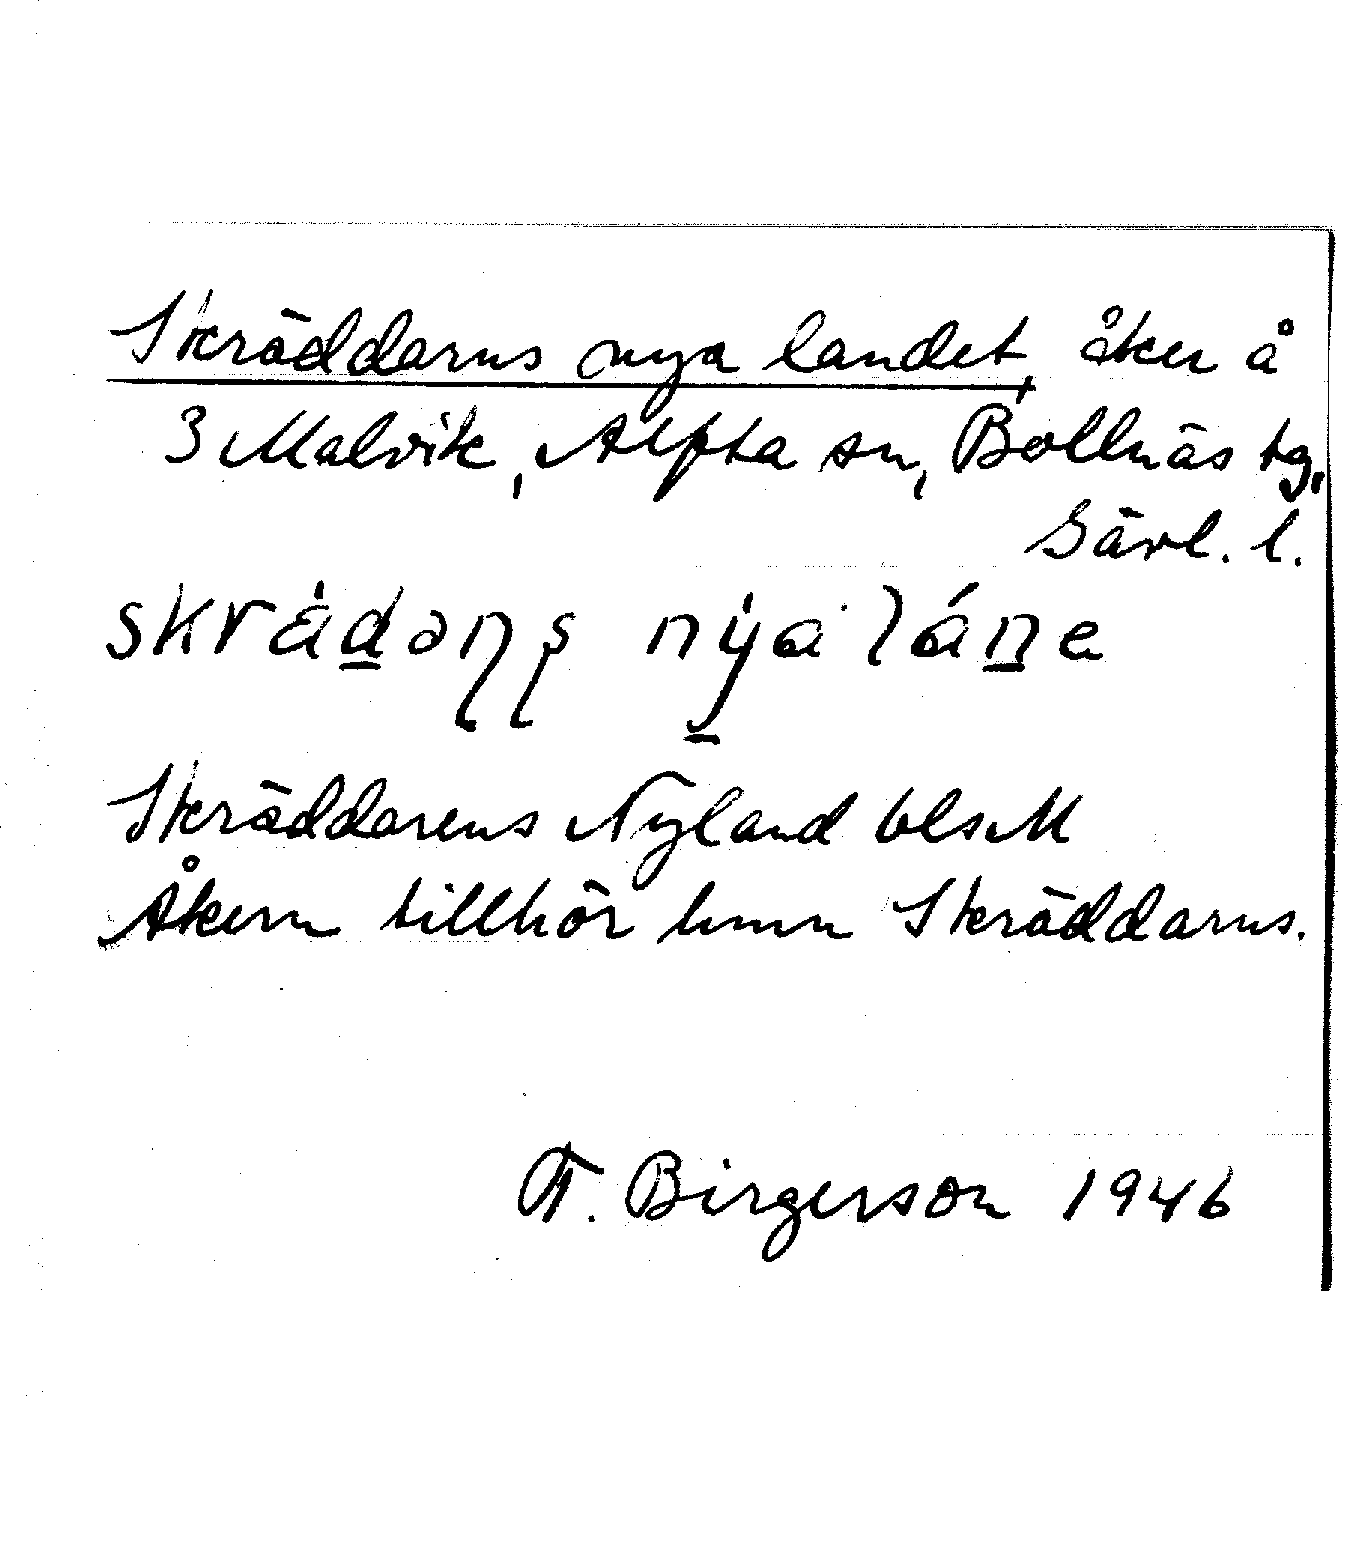 Skräddarns nya landet, åker å
3 Malvik, Alfta sn, Bollnäs tg,
Gävl. l.
skrä́d̲əɳʂ nýa lán̲e
Skräddarens Nyland blsM
Åkern tillhör hmn Skräddarns.
F. Birgerson 1946